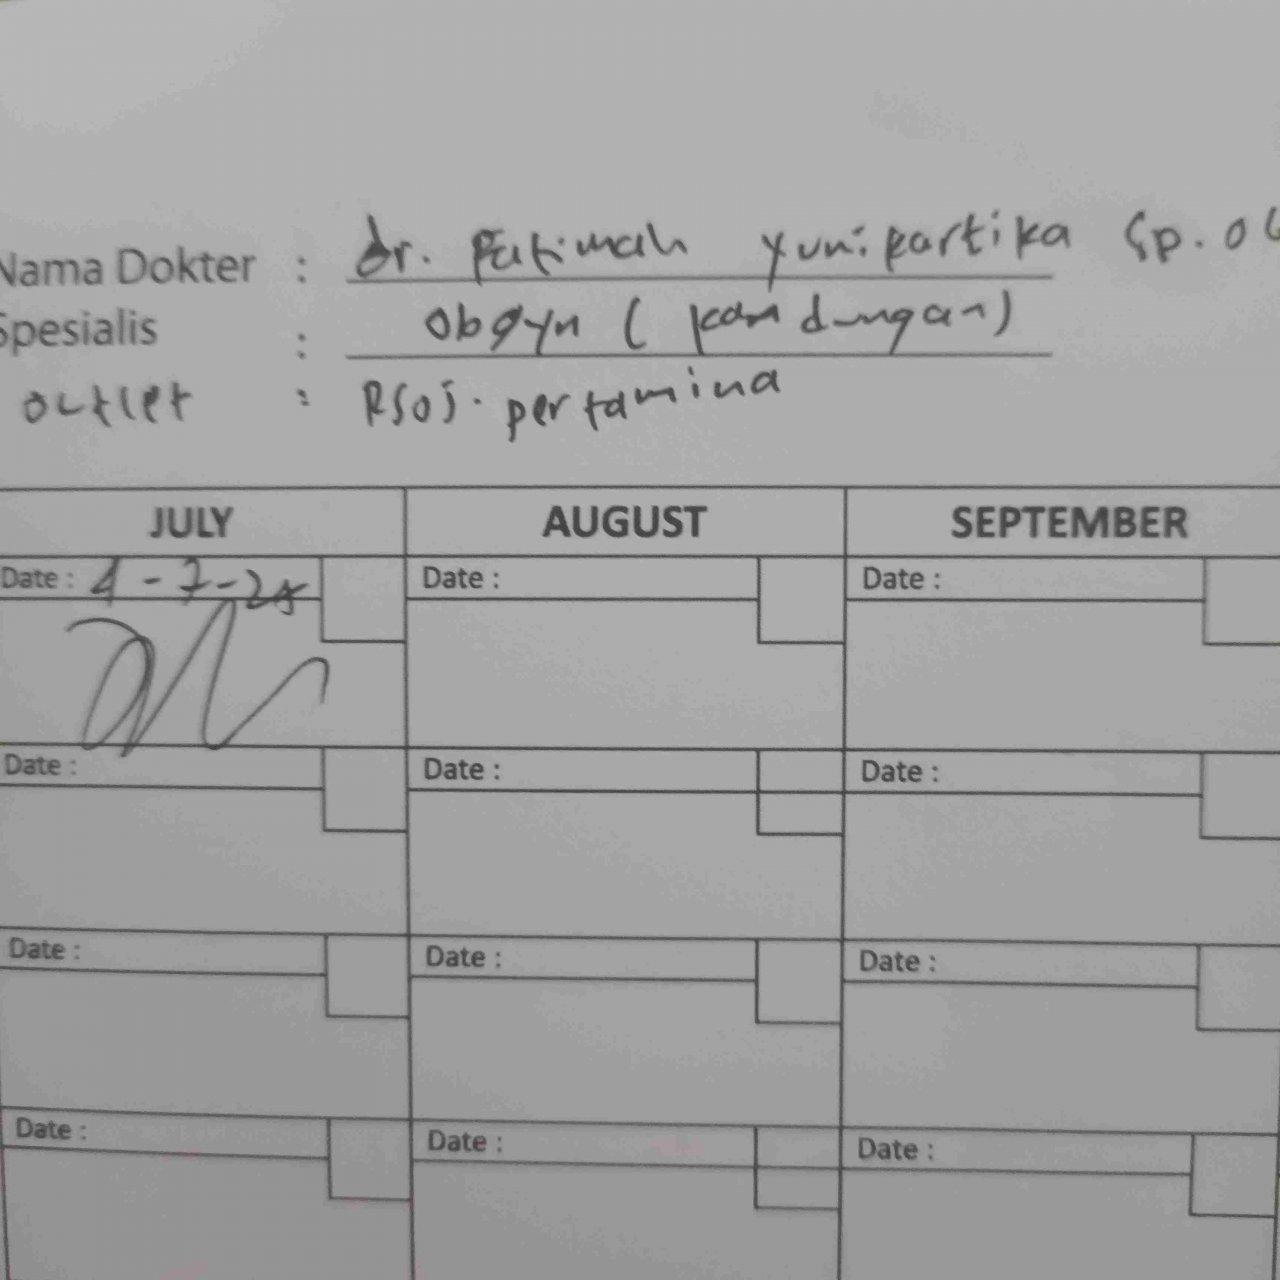 Nama Dokter : dr. Fatimah Yunipartika Sp. OG
Spesialis : Obgyn ( kandungan )
outlet : RSOJ. pertamina
JULY AUGUST SEPTEMBER
Date : 4 - 7 - 25 Date : Date :
Date : Date : Date :
Date : Date : Date :
Date : Date : Date :